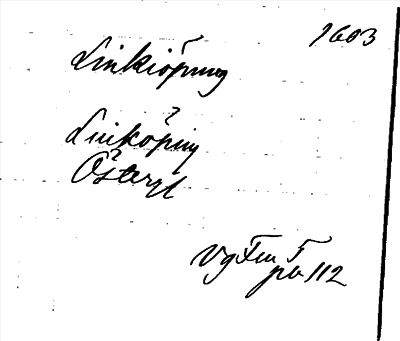 1603
Linkiöping
?
Linköping
Östergl
Vg Fm 5
pa 112